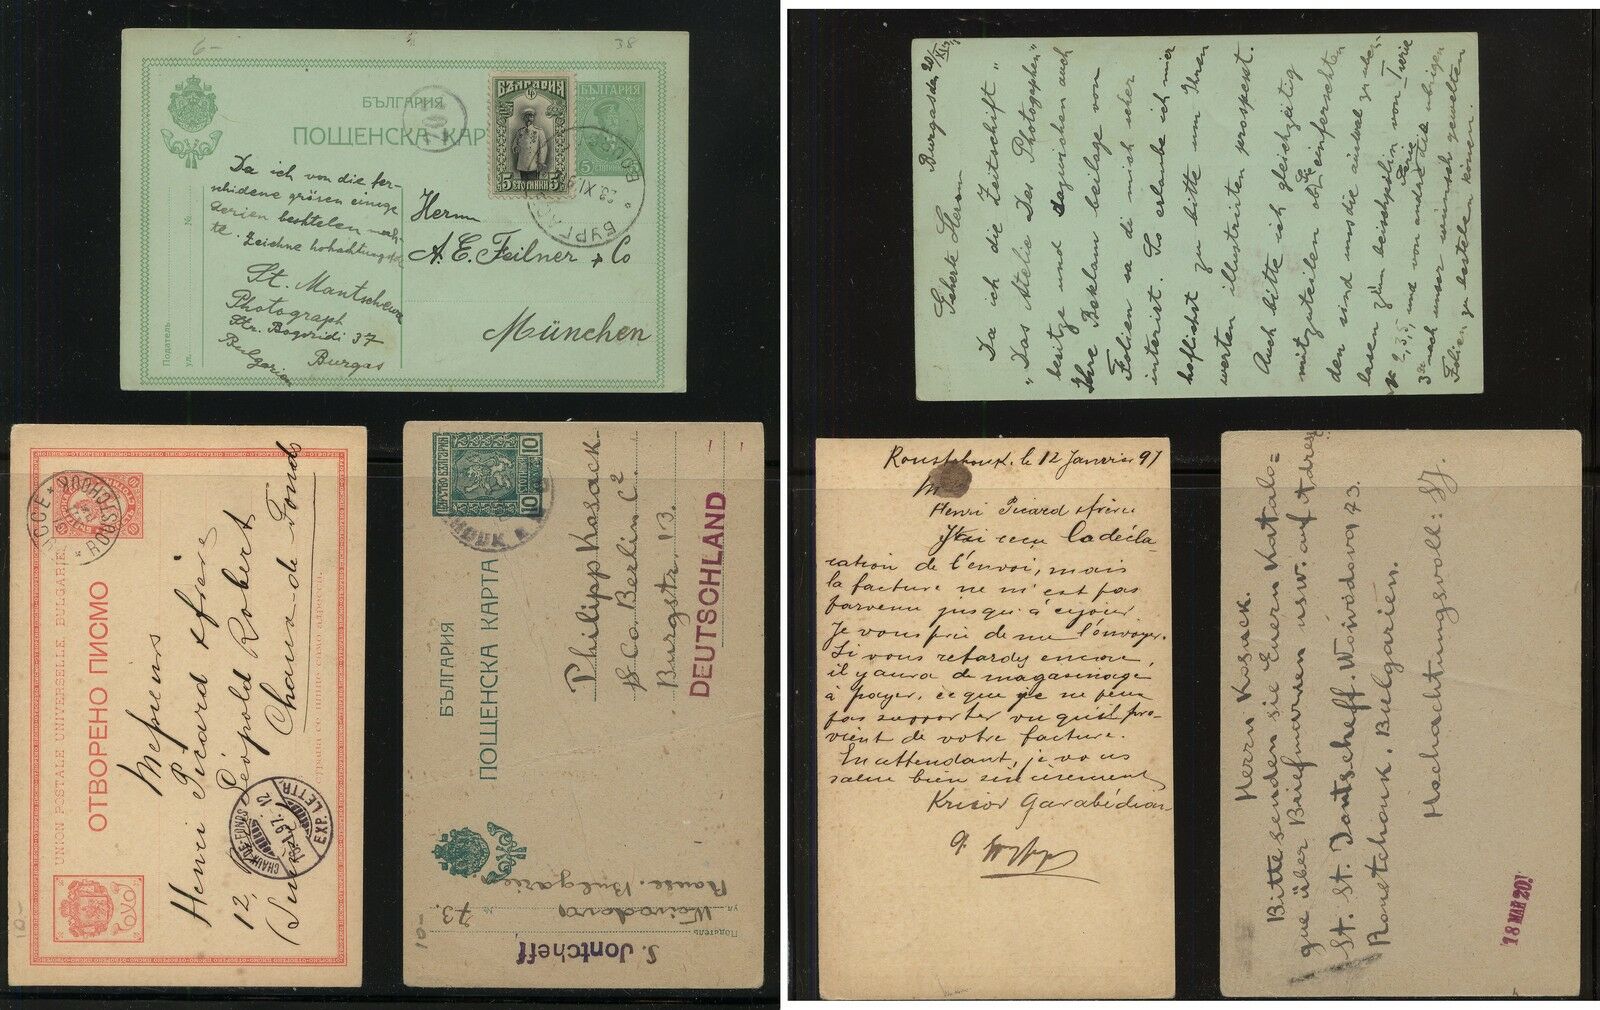 6-
38
БЪЛГАРИЯ
ПОЩЕНСКА КАР
БЪЛГАРИЯ
5 СТОТИНКИ 5
БЪЛГАРИЯ
5 СТОТИНКИ
БУРГАС
Da ich von die fer-
schidene grösen einige
serien beshtelen möch-
te. Zeichne hohachtungsfol
St. Mantschew
Photograph
Str. Bogoridi 37
Burgas
Bulgarien
Податель
ул.
№
Herrn
A. E. Feilner & Co
München
Burgas den 20/XI
Geherte Herrn
Da ich die Zeitschift "
"Das Atelie Des Photographen"
besitze und dazwischen auch
Ihre Reklam beilage von
Folien sa di mich seher
interist. So erlaube ich mier
hoflichst zu bitte um Ihren
werten illustriten prospekt.
Auch bitte ich gleichzeitig
mitzuteilen ob Sie einferschten
den sind uns die auswal zu über
lasen zum beischpihl von I Serie
№ 2, 3, 5, und von andere Serie
3 nach unser wunsch gewelten
Folien zu bestelen können.
UNION POSTALE UNIVERSELLE. BULGARIE
ОТВОРЕНО ПИСМО
ROUSTCHOUK
Messieurs
Henri Picard & frère
12, Léopold Robert
Chaux-de Fonds
Suisse
CHAUX-DE-FONDS
EXP. LETTR.
10-
ЦАРСТВО БЪЛГАРИЯ
10 10
БЪЛГАРИЯ
ПОЩЕНСКА КАРТА
Philipp Kosack
& Co. Berlin C2
Burgstr. 13.
DEUTSCHLAND
Податель
S. Jontcheff
ул.
Woivodova
№ 73.
Rousse. Bulgarie
10-
Roustchouk, le 12 Janvier 97
Henri Picard & frère
J'ai reçu la décla-
ration de l'envoi, mais
la facture ne m'est pas
parvenu jusqu'à ce jour
Je vous prie de me l'envoyer.
Si vous retardez encore,
il y aura de magasinage
à payer, ce que je ne peux
pas supporter vu qu'il pro-
vient de votre facture.
En attendant, je vous
salue bien sincèrement
Krikor Garabédian
Herrn Kosack.
Bitte senden sie Euern Katalo=
gue über Briefmarken usw. auf Adress
St. St. Jontscheff. Woiwodova 73.
Roustchouk. Bulgarien.
Hochachtungsvoll: SJ.
18 MAR 20!